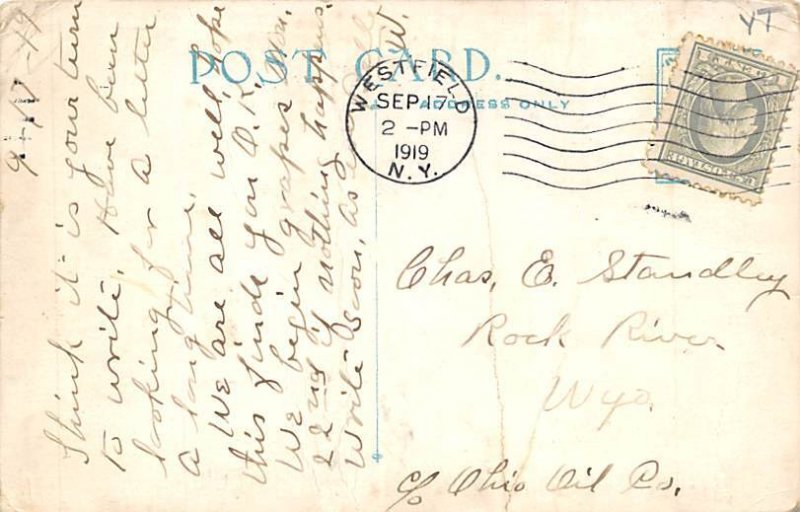 POST CARD.
ADDRESS ONLY
WESTFIELD
SEP 17
2 -PM
1919
N.Y.
YT
9-17-19
Think it is your turn
to write. Have been
looking for a letter
a long time.
We are all well, hope
this finds you O.K.
We begin grapes Mon.
22nd if nothing happens.
Write soon, as
W.
Chas. E. Standley
Rock River
Wyo.
c/o Ohio Oil Co.